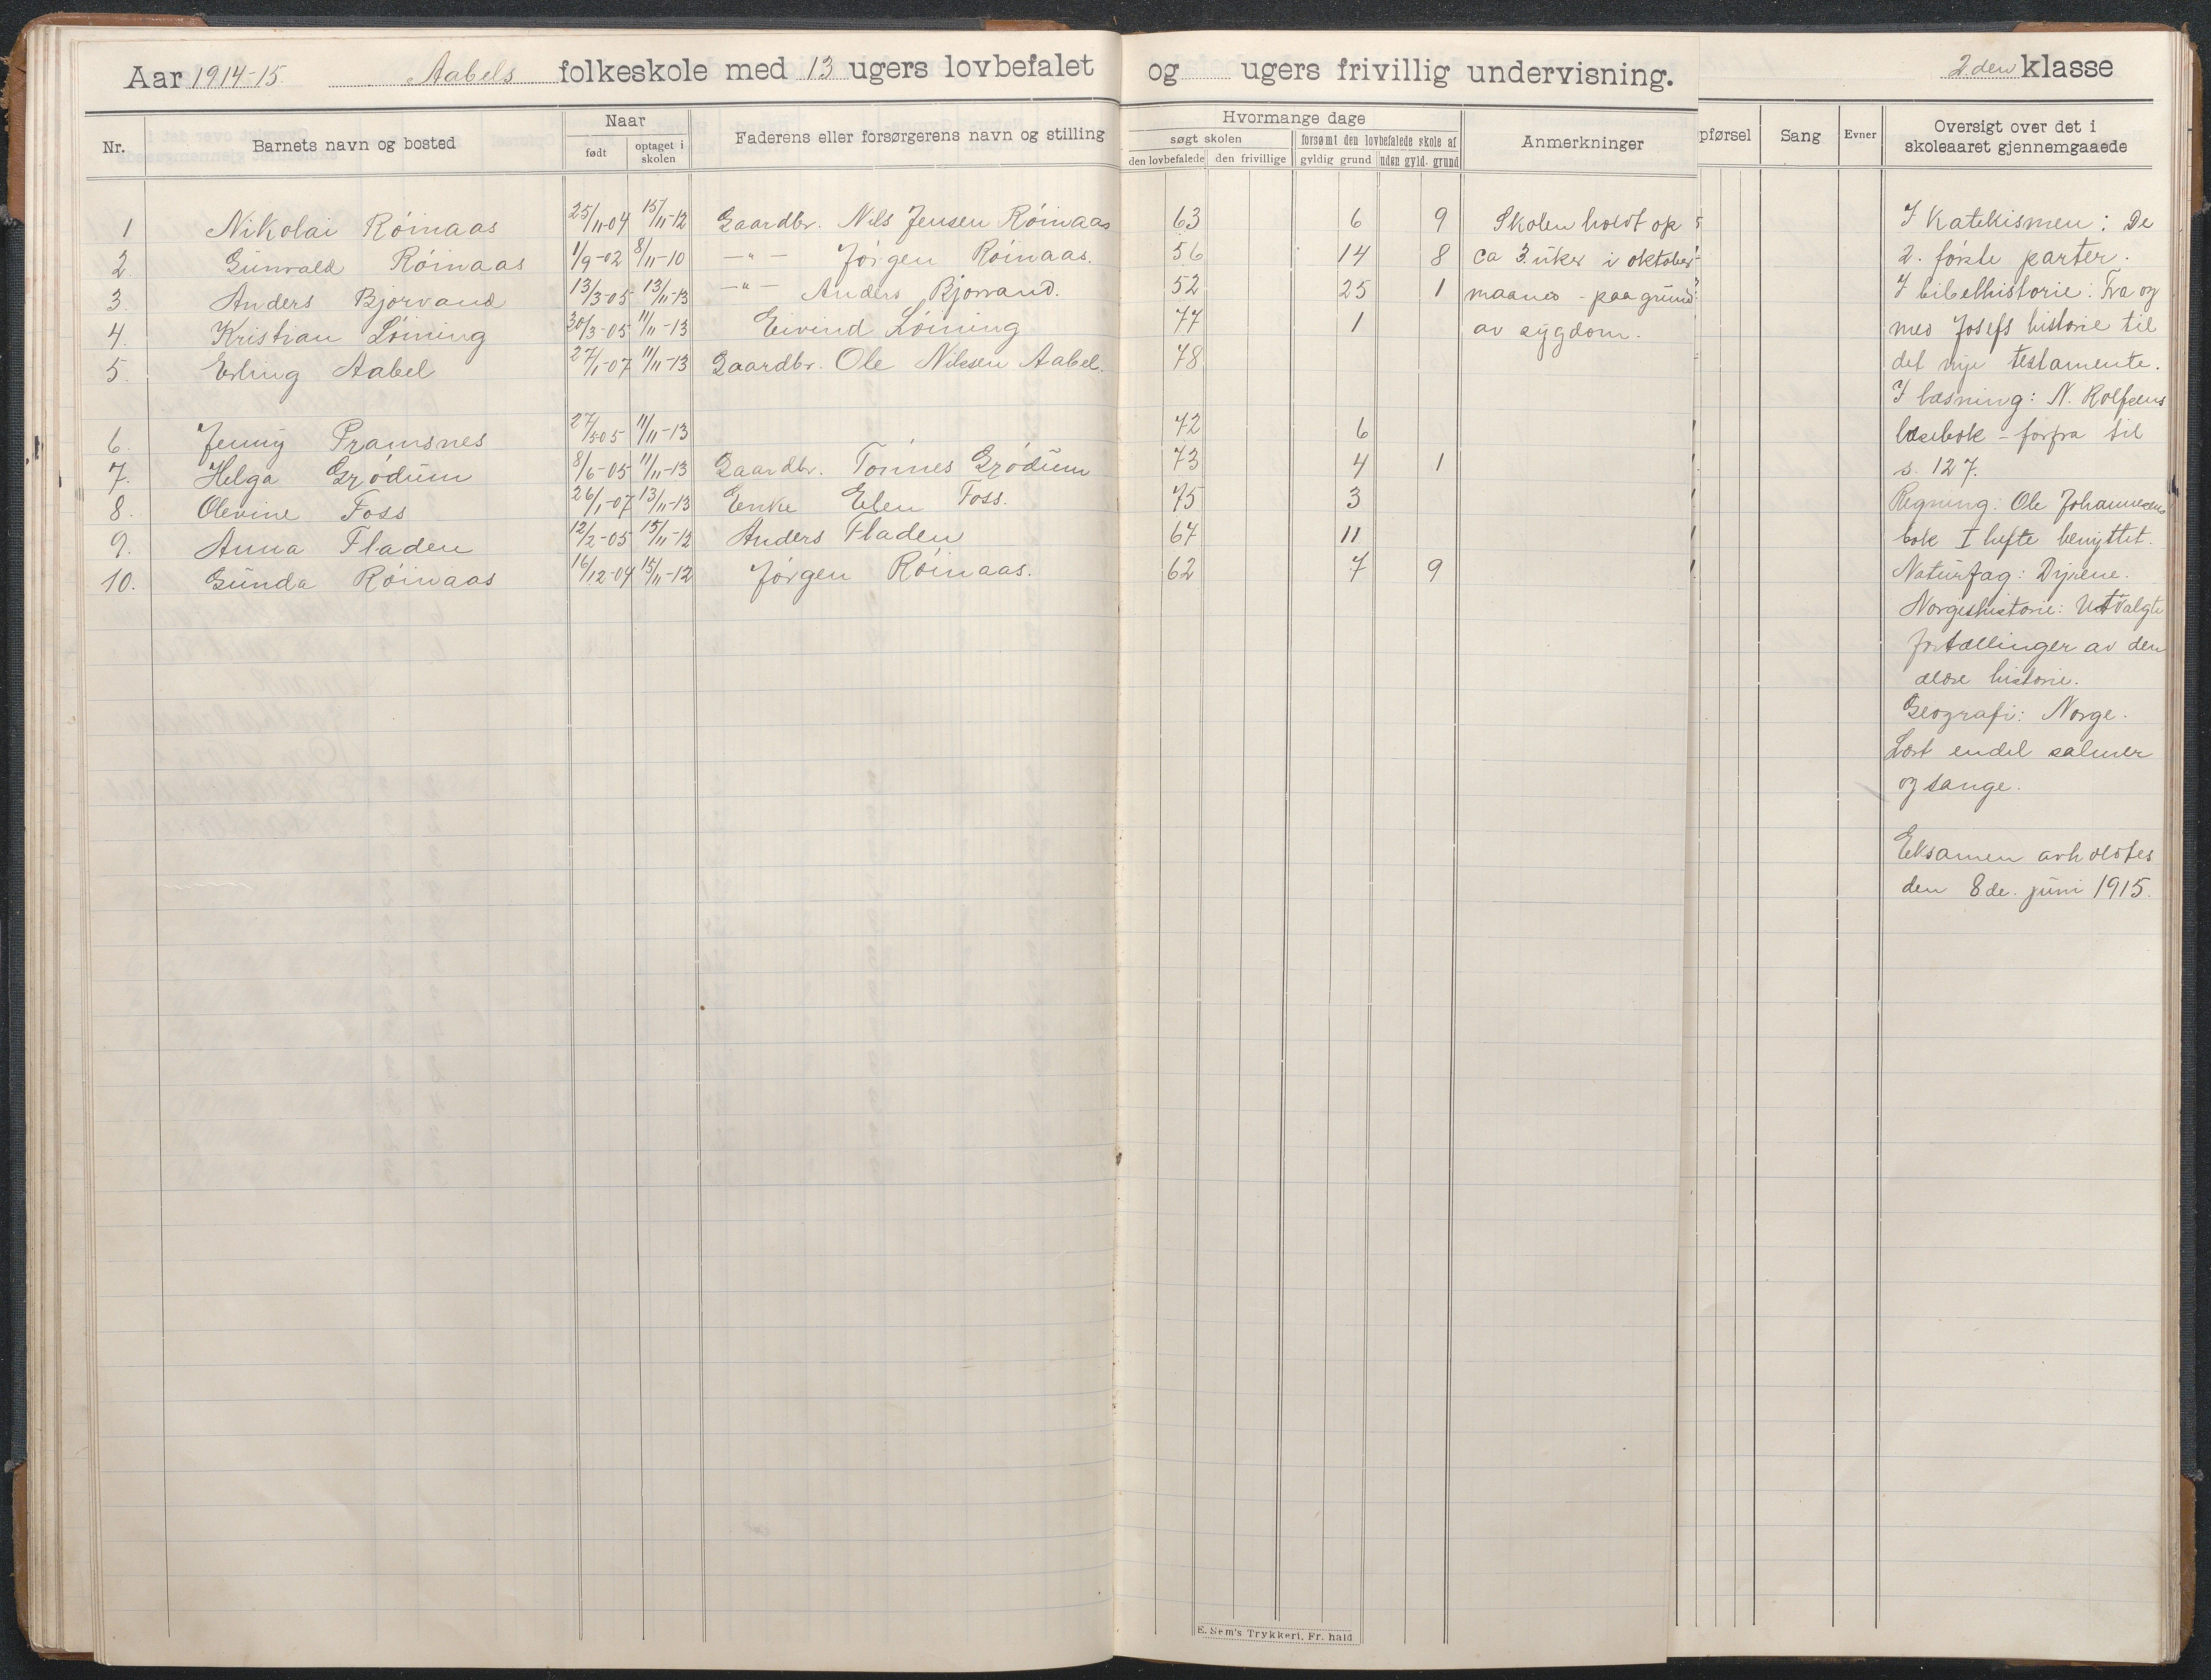 Aar 1914-15. Aabels folkeskole med 13 ugers lovbefalet og ugers frivillig undervisning. 2den klasse
Nr. Barnets navn og bosted Naar Faderens eller forsørgerens navn og stilling Hvormange dage Anmerkninger pførsel Sang Evner Oversigt over det i skoleaaret gjennemgaaede
født optaget i skolen søgt skolen forsømt den lovbefalede skole af
den lovbefalede den frivillige gyldig grund uden gyld. grund
1 Nikolai Röinaas 25/11-04 15/11-12 Gaardbr. Nils Jensen Röinaas 63 6 9 Skolen holdt op
2. Gunvald Röinaas 1/9-02 8/11-10 -"- Jørgen Röinaas. 56 14 8 ca 3 uker i oktober
3. Anders Bjorvand 13/3-05 13/11-13 -"- Anders Bjorvand. 52 25 1 maaned - paa grund
4. Kristian Löining 30/3-05 11/11-13 Eivind Löining 77 1 av sygdom.
5. Erling Aabel 27/1-07 11/11-13 Gaardbr. Ole Nilssen Aabel. 78
6. Jenny Pramsnes 27/5 05 11/11-13 72 6
7. Helga Grödum 8/6-05 11/11-13 Gaardbr. Tönnes Grödum 73 4 1
8. Olevine Foss 26/1-07 13/11-13 Enke Elen Foss. 75 3
9. Anna Fladen 12/2-05 15/11-12 Anders Fladen 67 11
10. Gunda Röinaas 16/12-04 15/11-12 Jørgen Röinaas. 62 7 9
I Katekismen: De
2. første parter.
I bibelhistorie: Fra og
med Josefs historie til
det nye testamente.
I læsning: N. Rolfsens
læsebok - forfra til
s. 127.
Regning: Ole Johannesens
bok I hefte benyttet.
Naturfag: Dyrene.
Norgeshistorie: Utvalgte
fortællinger av den
ældre historie.
Geografi: Norge.
Lært endel salmer
og sange.
Eksamen avholdtes
den 8de. juni 1915.
E. Sem's Trykkeri, Fr.hald